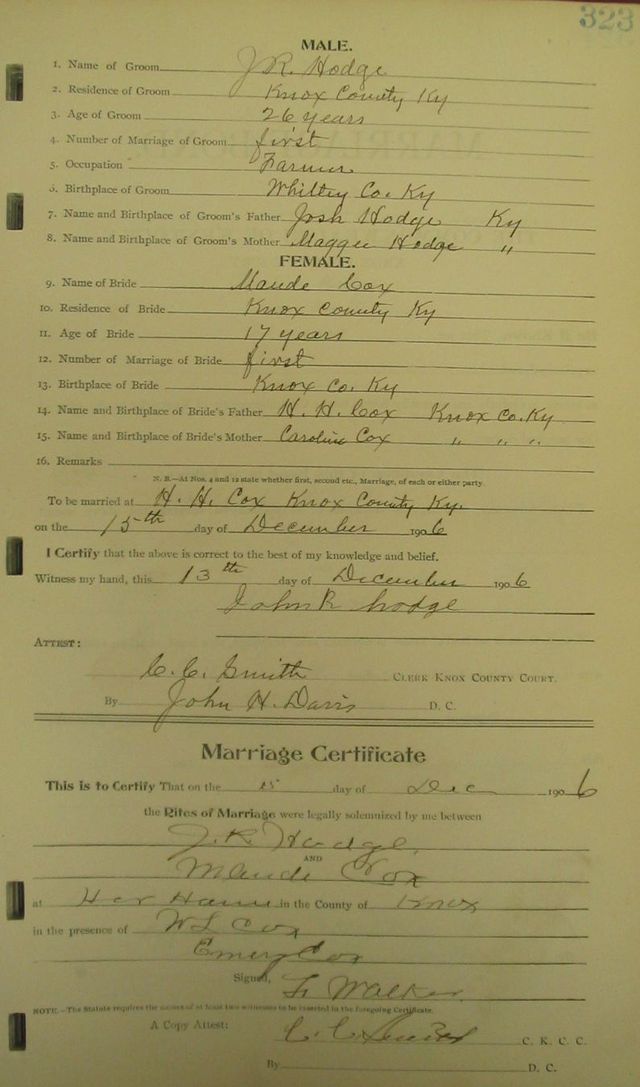 323
MALE.
1. Name of Groom J.R. Hodge
2. Residence of Groom Knox County Ky
3. Age of Groom 26 years
4. Number of Marriage of Groom first
5. Occupation Farmer
6. Birthplace of Groom Whitley Co. Ky
7. Name and Birthplace of Groom's Father Josh Hodge Ky
8. Name and Birthplace of Groom's Mother Maggie Hodge "
FEMALE.
9. Name of Bride Maude Cox
10. Residence of Bride Knox County Ky
11. Age of Bride 17 years
12. Number of Marriage of Bride first
13. Birthplace of Bride Knox Co. Ky
14. Name and Birthplace of Bride's Father H. H. Cox Knox Co. Ky
15. Name and Birthplace of Bride's Mother Caroline Cox " " "
16. Remarks
N. B.—At Nos. 4 and 12 state whether first, second etc., Marriage, of each or either party.
To be married at H. H. Cox Knox County Ky.
on the 15th day of December 1906
I Certify that the above is correct to the best of my knowledge and belief.
Witness my hand, this 13th day of December 1906
John R Hodge
ATTEST:
C. C. Smith CLERK KNOX COUNTY COURT.
By John H. Davis D. C.
Marriage Certificate
This is to Certify That on the 15 day of Dec 1906
the Rites of Marriage were legally solemnized by me between
J. R. Hodge
AND
Maude Cox
at in the County of Knox
in the presence of W L Cox
Emery Cox
Signed, Walker
NOTE.—The Statute requires the names of at least two witnesses to be inserted in the foregoing Certificate.
A Copy Attest: C. C. Smith C. K. C. C.
By D. C.